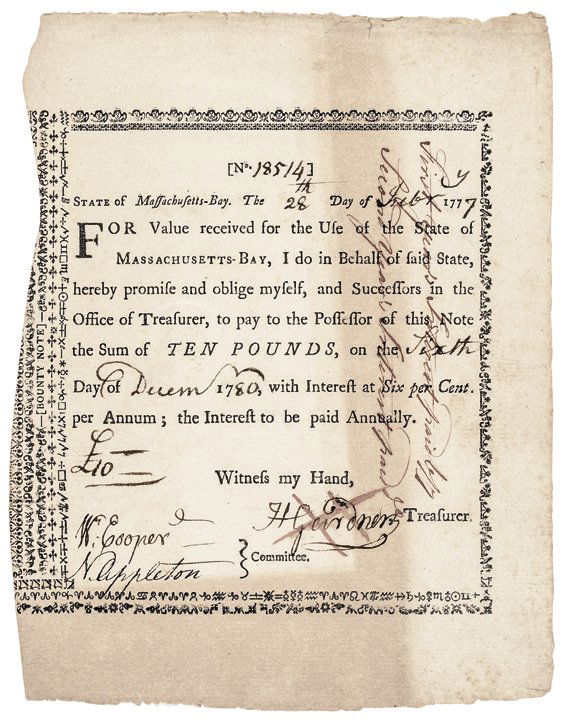 [No. 18514]
STATE of Massachusetts-Bay. The 28th Day of Feby 1777
FOR Value received for the Use of the State of
MASSACHUSETTS-BAY, I do in Behalf of said State,
hereby promise and oblige myself, and Successors in the
Office of Treasurer, to pay to the Possessor of this Note
the Sum of TEN POUNDS, on the Sixth
Day of Decem 1780, with Interest at Six per Cent.
per Annum; the Interest to be paid Annually.
£10
Witness my Hand,
H Gardner Treasurer.
W. Cooper
N. Appleton
} Committee.
[BOUNTY NOTE]